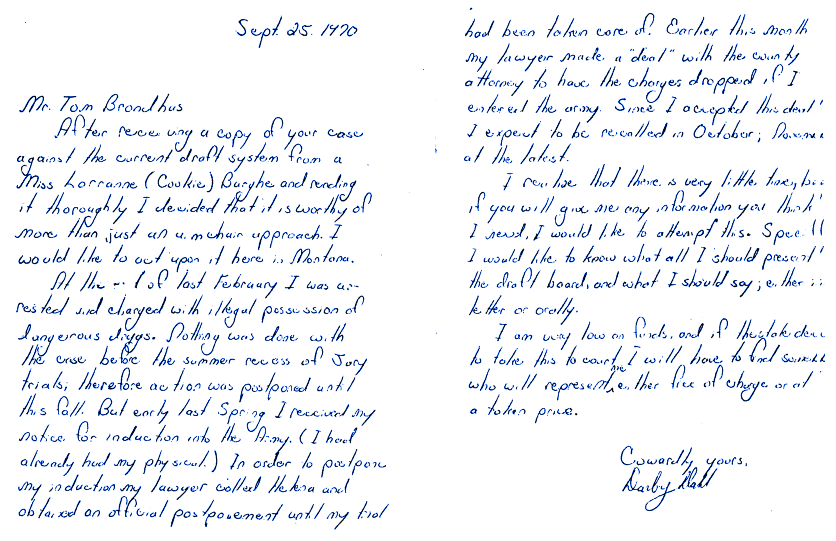 Sept. 25. 1970
Mr. Tom Brondhus
After receiving a copy of your case
against the current draft system from a
Miss Lorranne (Cookie) Burghe and reading
it thoroughly I decided that it is worthy of
more than just an armchair approach. I
would like to act upon it here in Montana.
At the end of last February I was ar-
rested and charged with illegal possession of
dangerous drugs. Nothing was done with
the case before the summer recess of Jury
trials; therefore action was postponed until
this fall. But early last Spring I received my
notice for induction into the Army. (I had
already had my physical.) In order to postpone
my induction my lawyer called Helena and
obtained an official postponement until my trial
had been taken care of. Earlier this month
my lawyer made a "deal" with the county
attorney to have the charges dropped if I
entered the army. Since I accepted this deal
I expect to be recalled in October;
at the latest.
I realize that there is very little time, but
if you will give me any information you think
I need, I would like to attempt this.
I would like to know what all I should present
the draft board, and what I should say; either in
letter or orally.
I am very low on funds, and if
to take this to court, I will have to find
who will represent me, either free of charge or at
a token price.
Cowardly yours,
Darby Dahl